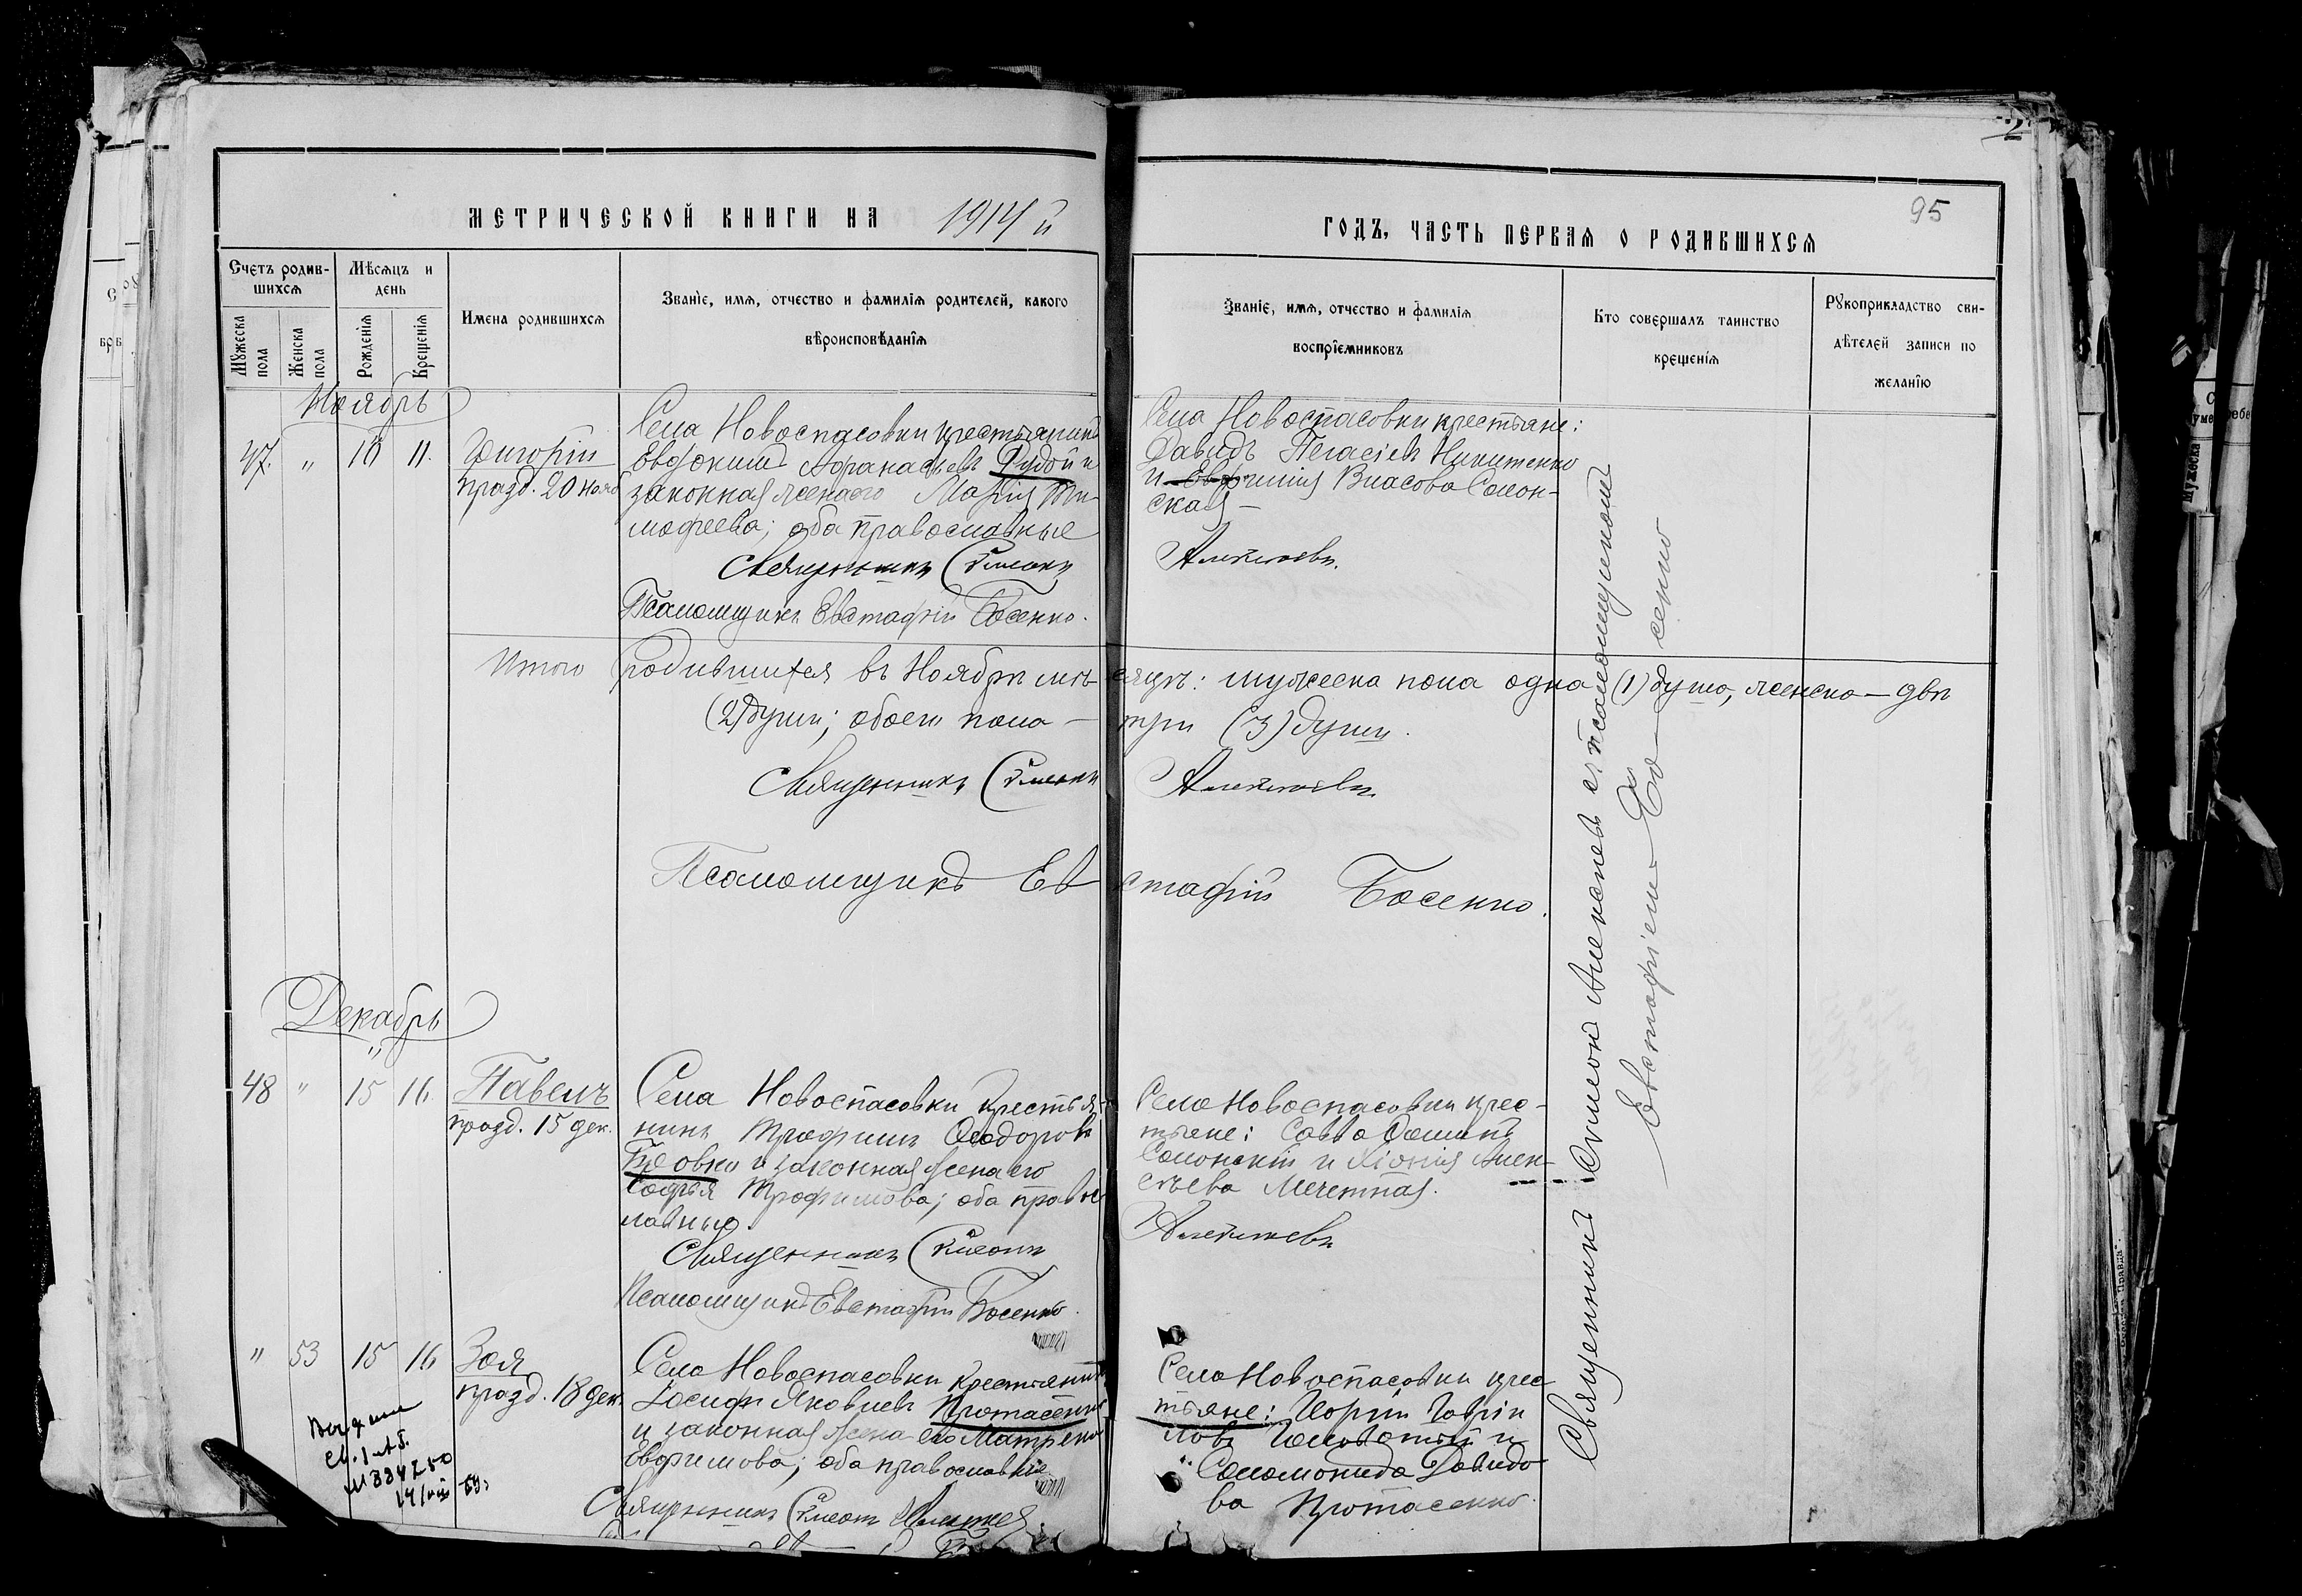 МЕТРИЧЕСКОЙ КНИГИ НА 1914 й
ГОДЪ, ЧАСТЬ ПЕРВАЯ О РОДИВШИХСЯ
95
Счетъ родив-
шихся
Мѣсяцъ и
день
Мужеска
пола
Женска
пола
Рожденія
Крещенія
Имена родившихся
Званіе, имя, отчество и фамилія родителей, какого
вѣроисповѣданія
Званіе, имя, отчество и фамилія
воспріемниковъ
Кто совершалъ таинство
крещенія
Рукоприкладство сви-
дѣтелей записи по
желанію
Ноябрь
47. " 10 11.
Григорій
празд. 20 нояб
Села Новоспасовки крестьянинъ
Евдокимъ Афанасьевъ Рудой и
законная жена его Марія Ти-
мофеева; оба православные
Священникъ Симеонъ
Псаломщикъ Евстафій Босенко.
Села Новоспасовки крестьяне:
Давидъ Никитенко
и Власова Солон-
ская
Алексѣевъ.
Итого родившихся въ Ноябрѣ мѣ-сяцѣ: мужеска пола одна (1) душа, женска — двѣ
(2) души; обоего пола — три (3) души.
Священникъ Симеонъ Алексѣевъ.
Псаломщикъ Евстафій Босенко.
Декабрь
48 " 15 16.
Павелъ
празд. 15 дек.
Села Новоспасовки крестья-
нинъ Трофимъ Ѳеодоровъ
и законная жена его
Софья Трофимова; оба право-
славные.
Священникъ Симеонъ
Псаломщикъ Евстафій Босенко.
Села Новоспасовки крес-
тьяне: Савва
Солонскій и Хіонія Алек-
сѣева Мечетная.
Алексѣевъ
" 53 15 16
Зоя
празд. 18 дек.
Села Новоспасовки крестьянинъ
Іосифъ Яковлевъ Протасенко
и законная жена его Матрена
Евфимова; оба православные
Священникъ Симеонъ Алексѣев
Села Новоспасовки крес-
тьяне: Гавріи-
ловъ и
Соломонида Давидо-
ва Протасенко.
Священникъ Симеонъ Алексѣевъ съ псаломщикомъ
Евстафіемъ Босенко